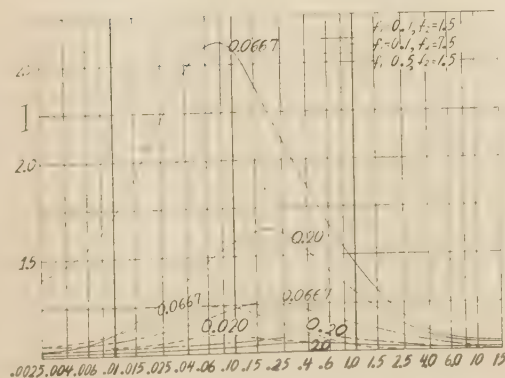 0.0667
f₁ 0.1, f₂=1.5
f₁=0.1, f₂=1.5
f₁ 0.5, f₂=1.5
2.0
0.20
1.5
0.0667
0.0667
0.020
0.20
20
.0025 .004 .006 .01 .015 .025 .04 .06 .10 .15 .25 .4 .6 1.0 1.5 2.5 4.0 6.0 10 15